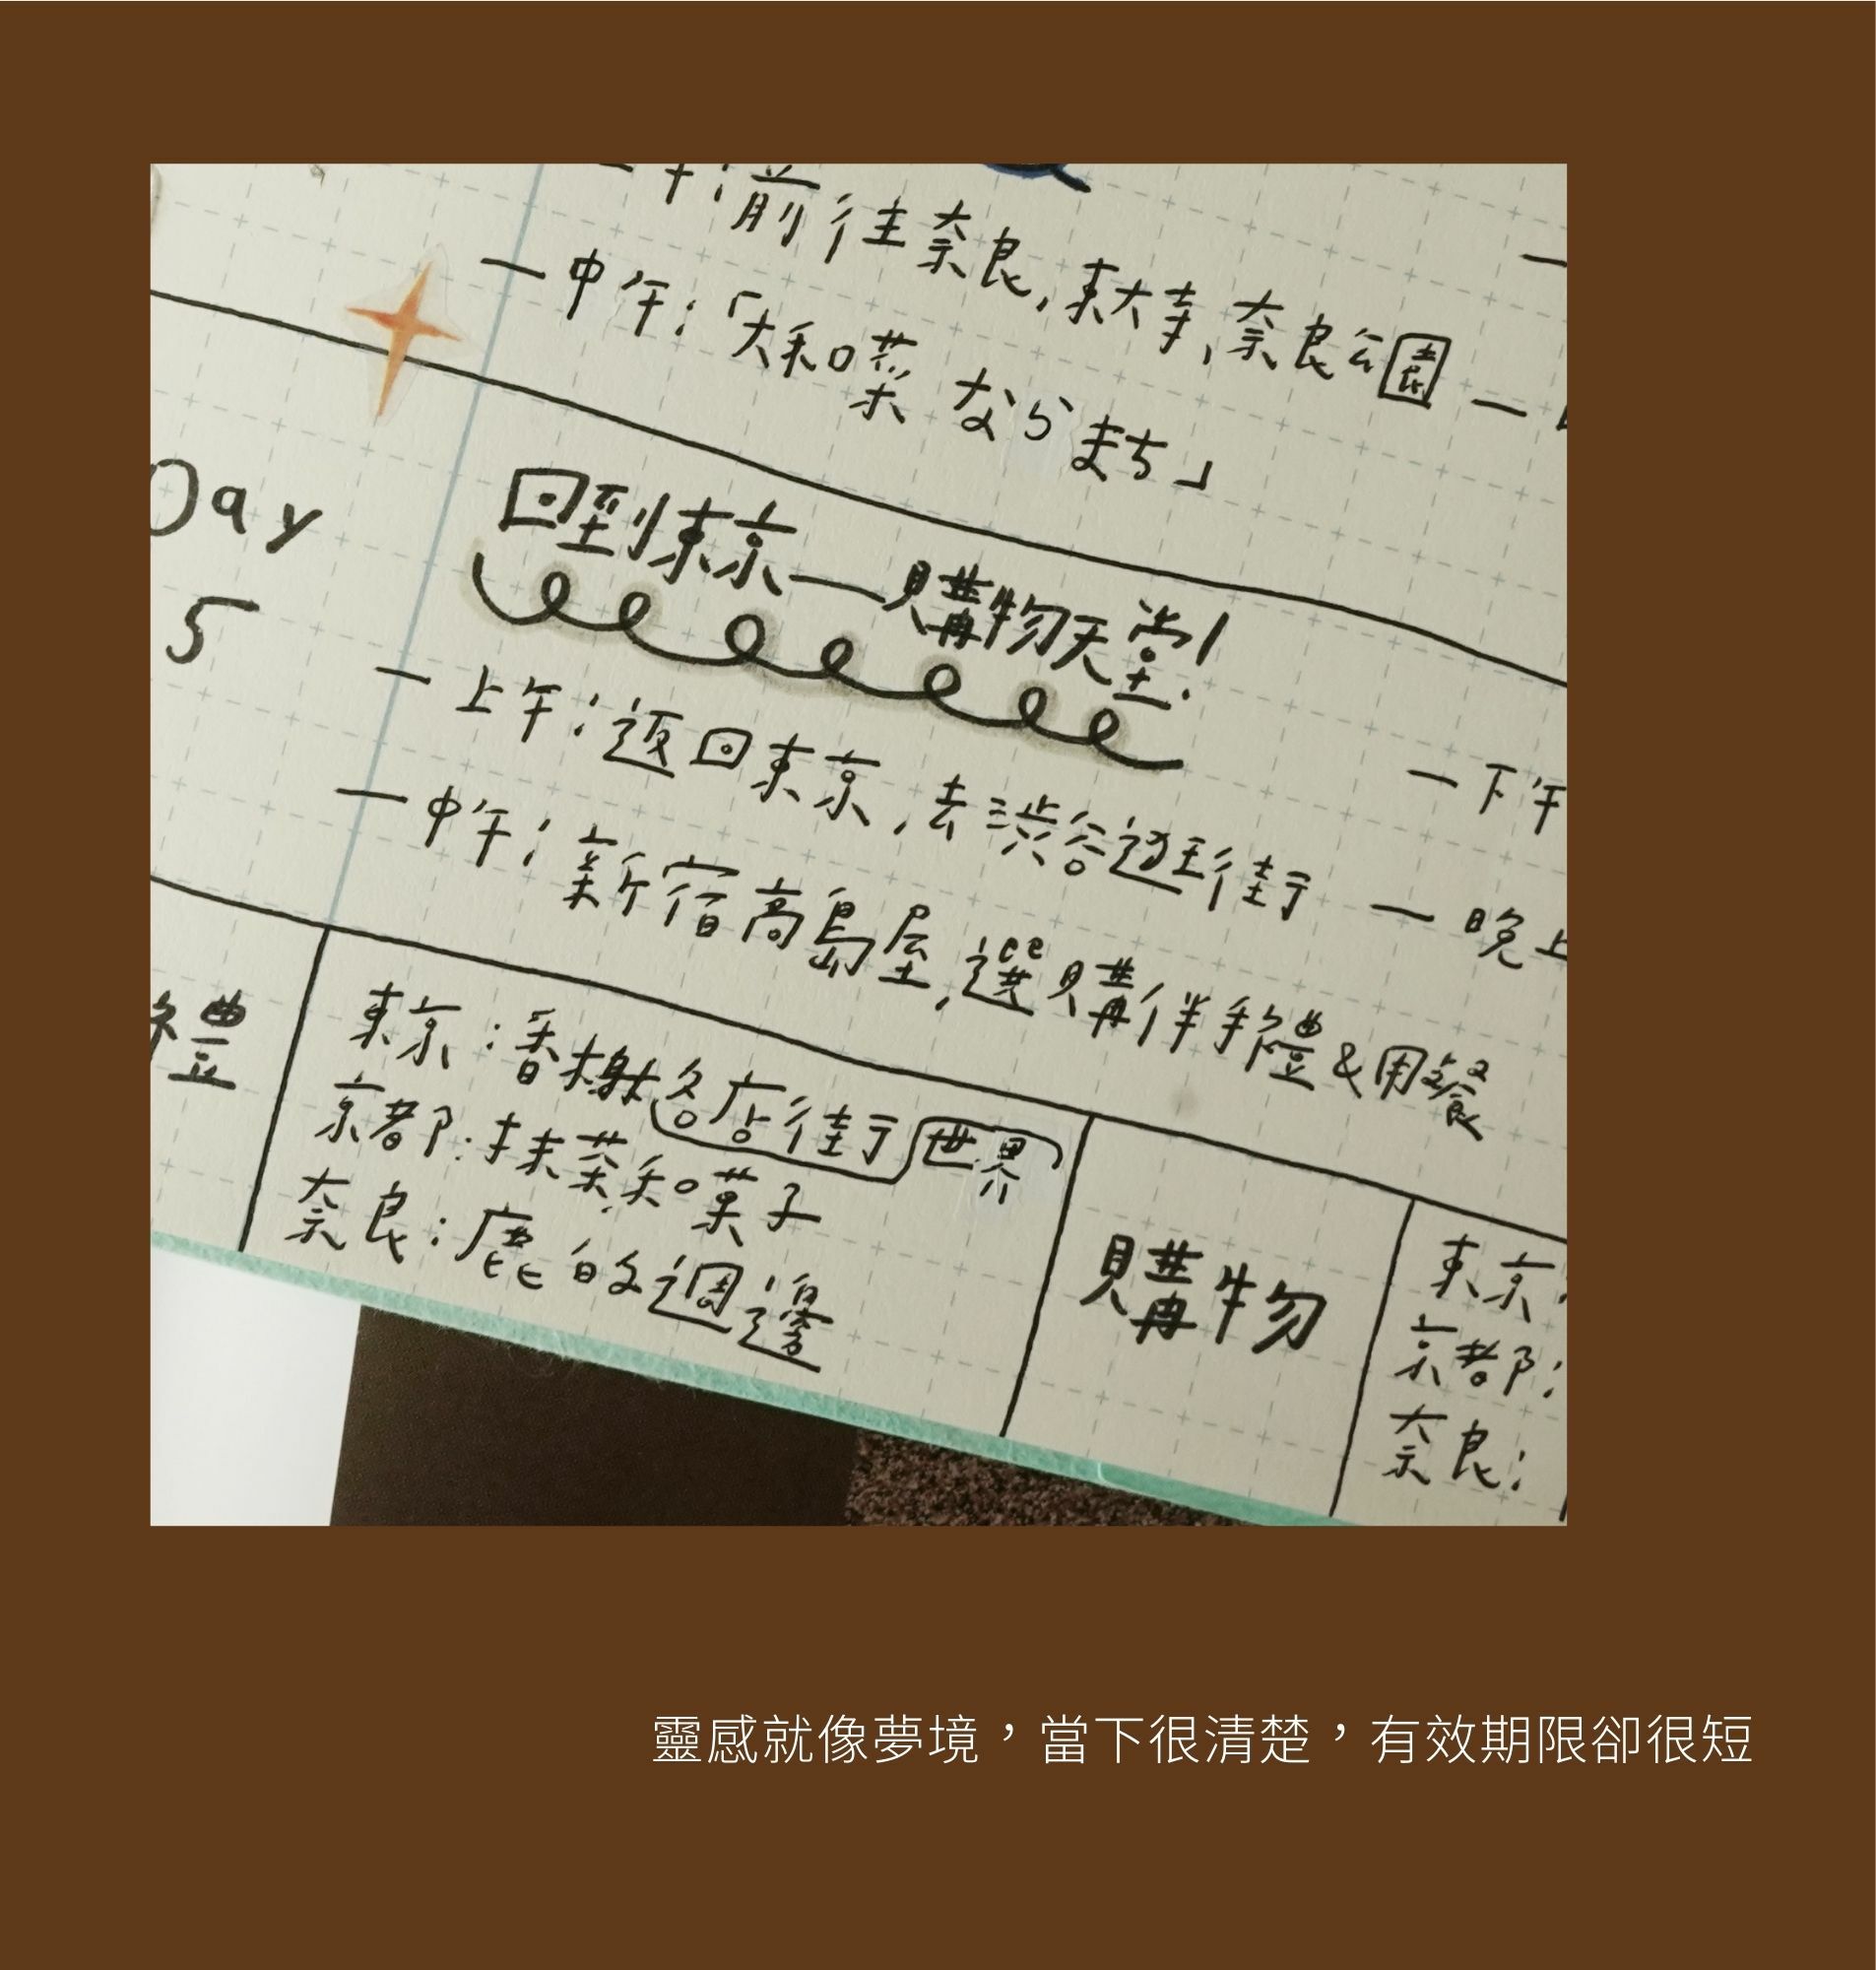 午：前往奈良,東大寺,奈良公園
一中午：「大和菜 ならまち」
Day
5
回到東京—購物天堂!
一上午：返回東京,去渋谷逛街
一下午
一中午：新宿高島屋,選購伴手禮&用餐
一晚上
禮
東京：香榭名店街世界
京都：抹茶和菓子
奈良：鹿的週邊
購物
東京：
京都：
奈良：
靈感就像夢境，當下很清楚，有效期限卻很短